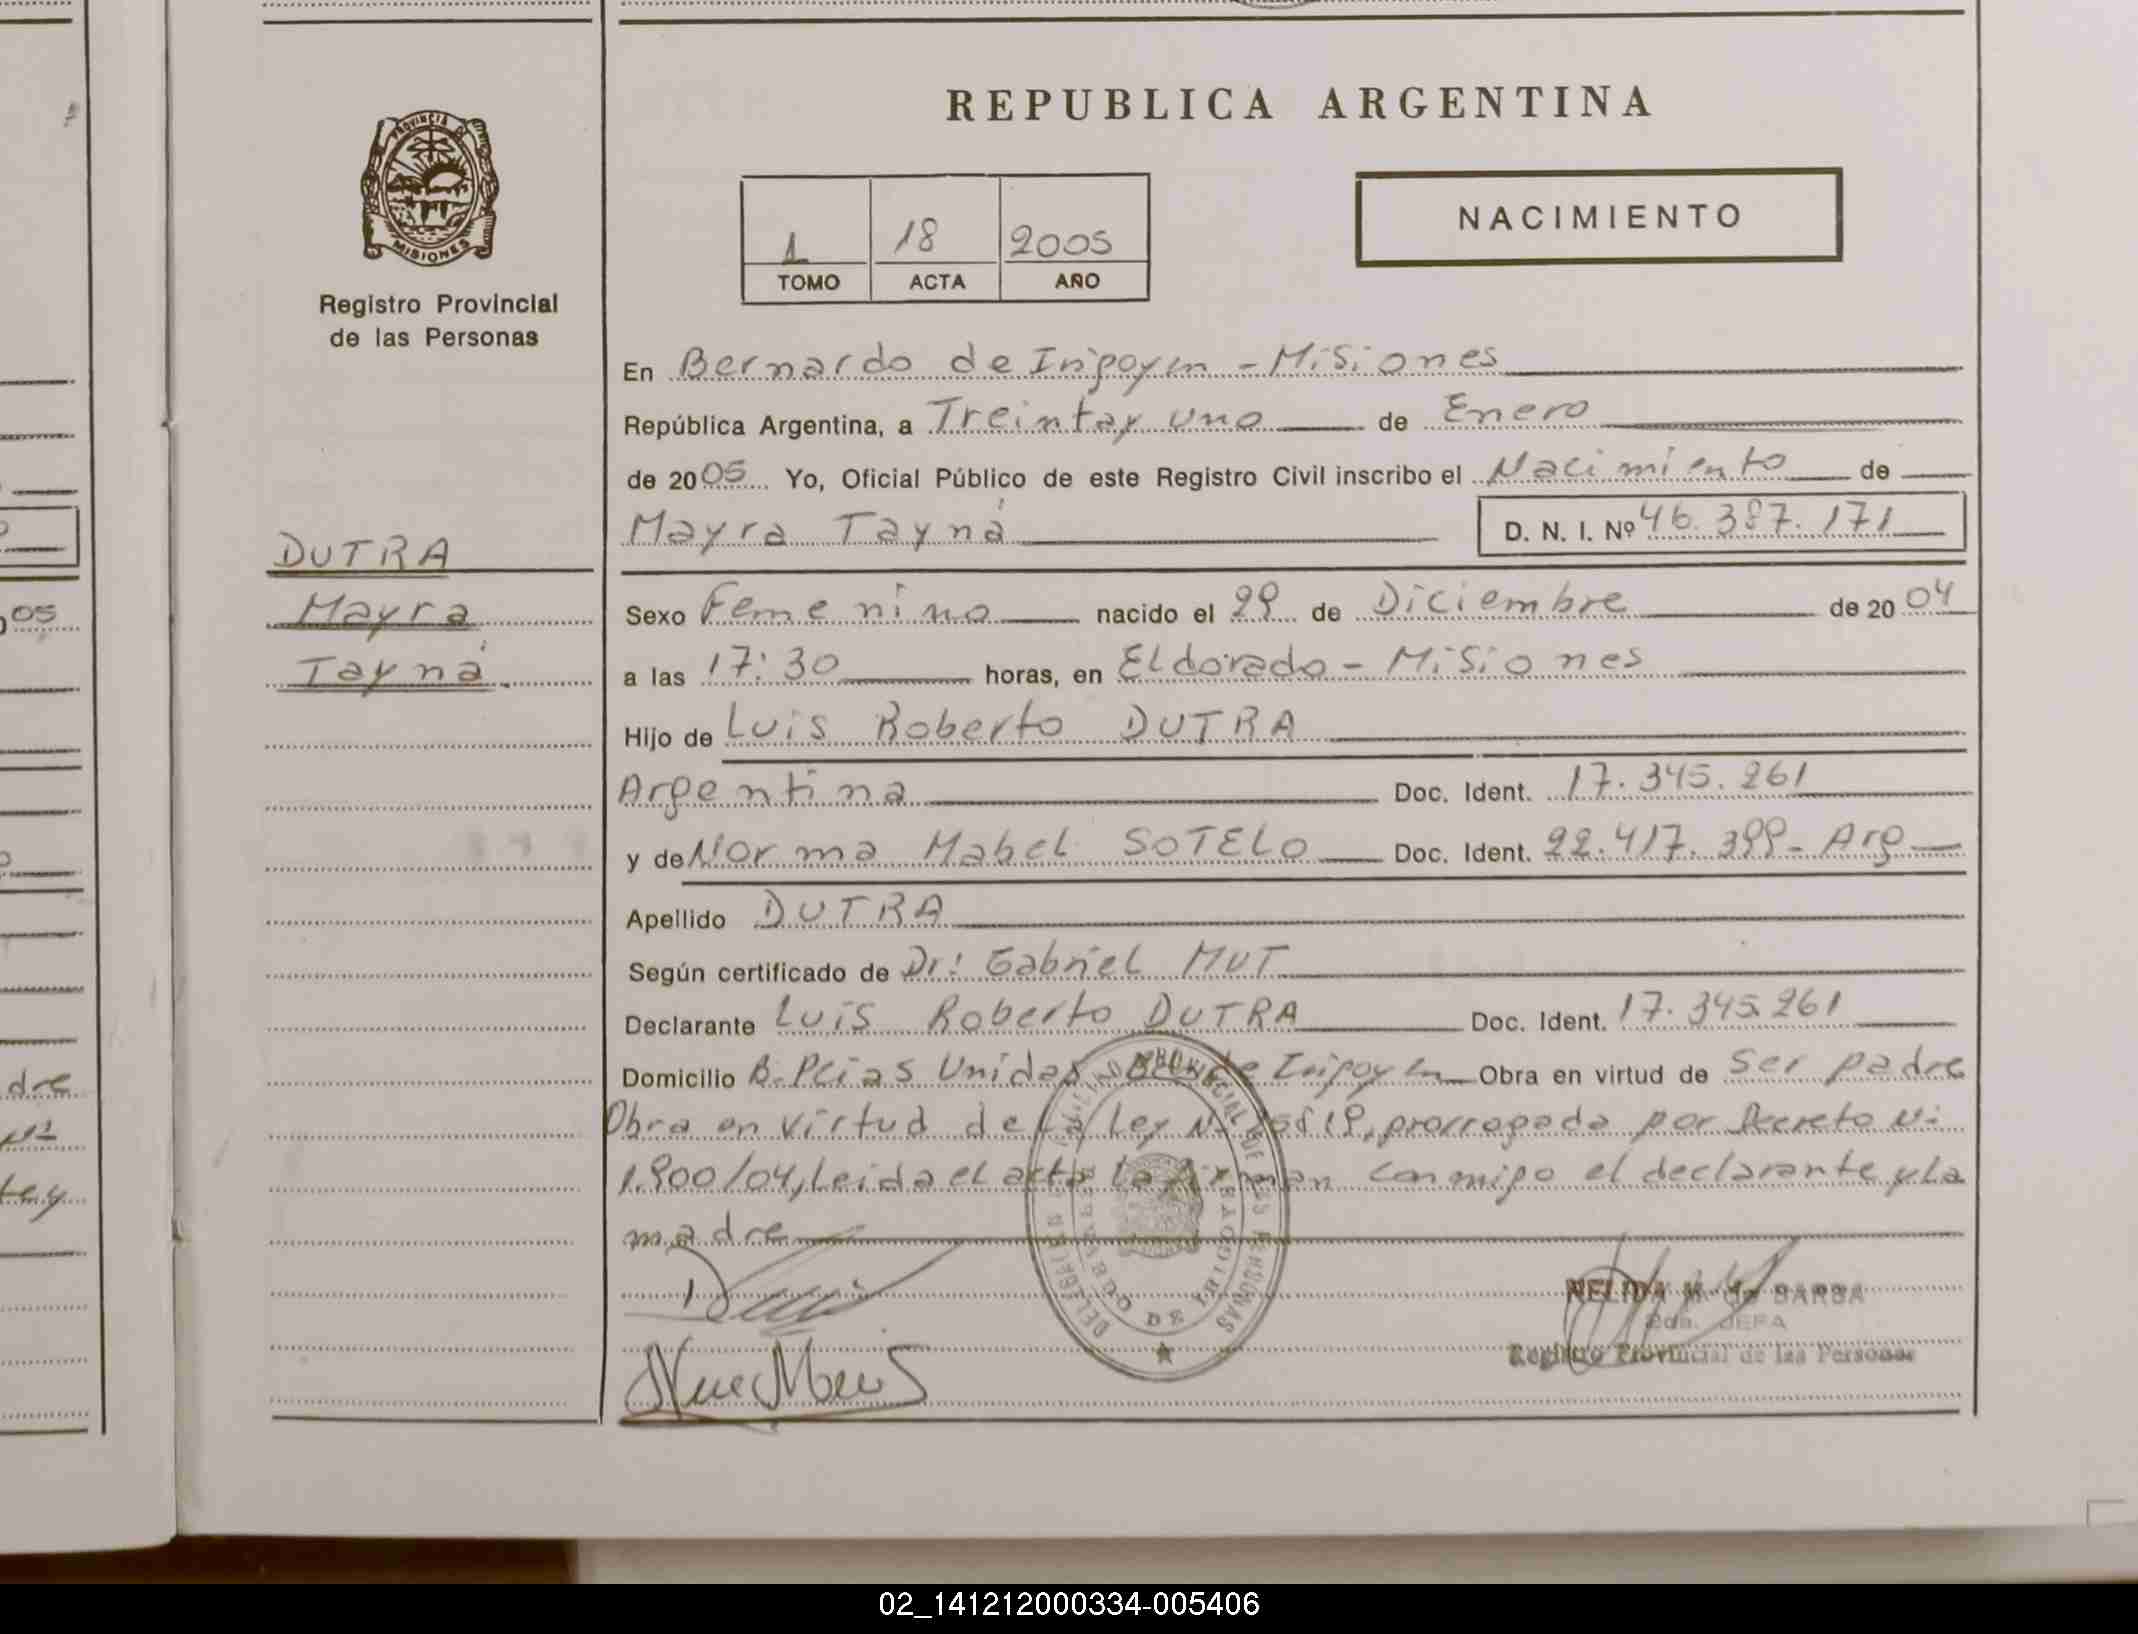 REPUBLICA ARGENTINA
PROVINCIA DE MISIONES
Registro Provincial
de las Personas
1 18 2005
TOMO ACTA AÑO
NACIMIENTO
En Bernardo de Irigoyen - Misiones
República Argentina, a Treinta y uno de Enero
de 2005 Yo, Oficial Público de este Registro Civil inscribo el Nacimiento de
Mayra Tayná D. N. I. Nº 46.387.171
DUTRA
Mayra
Tayná
Sexo Femenino nacido el 29 de Diciembre de 2004
a las 17:30 horas, en Eldorado - Misiones
Hijo de Luis Roberto DUTRA
Argentina Doc. Ident. 17.345.261
y de Norma Mabel SOTELO Doc. Ident. 22.417.399 - Arg
Apellido DUTRA
Según certificado de Dr: Gabriel MUT
Declarante Luis Roberto DUTRA Doc. Ident. 17.345.261
Domicilio B. Pcias Unidas Irigoyen Obra en virtud de Ser padre
Obra en virtud de la Ley prorrogada por Decreto N:
1.900/04, Leida el acta la firman conmigo el declarante y la
madre
BERNARDO DE IRIGOYEN
NELIDA M. de BARBA
Registro Provincial de las Personas
02_141212000334-005406